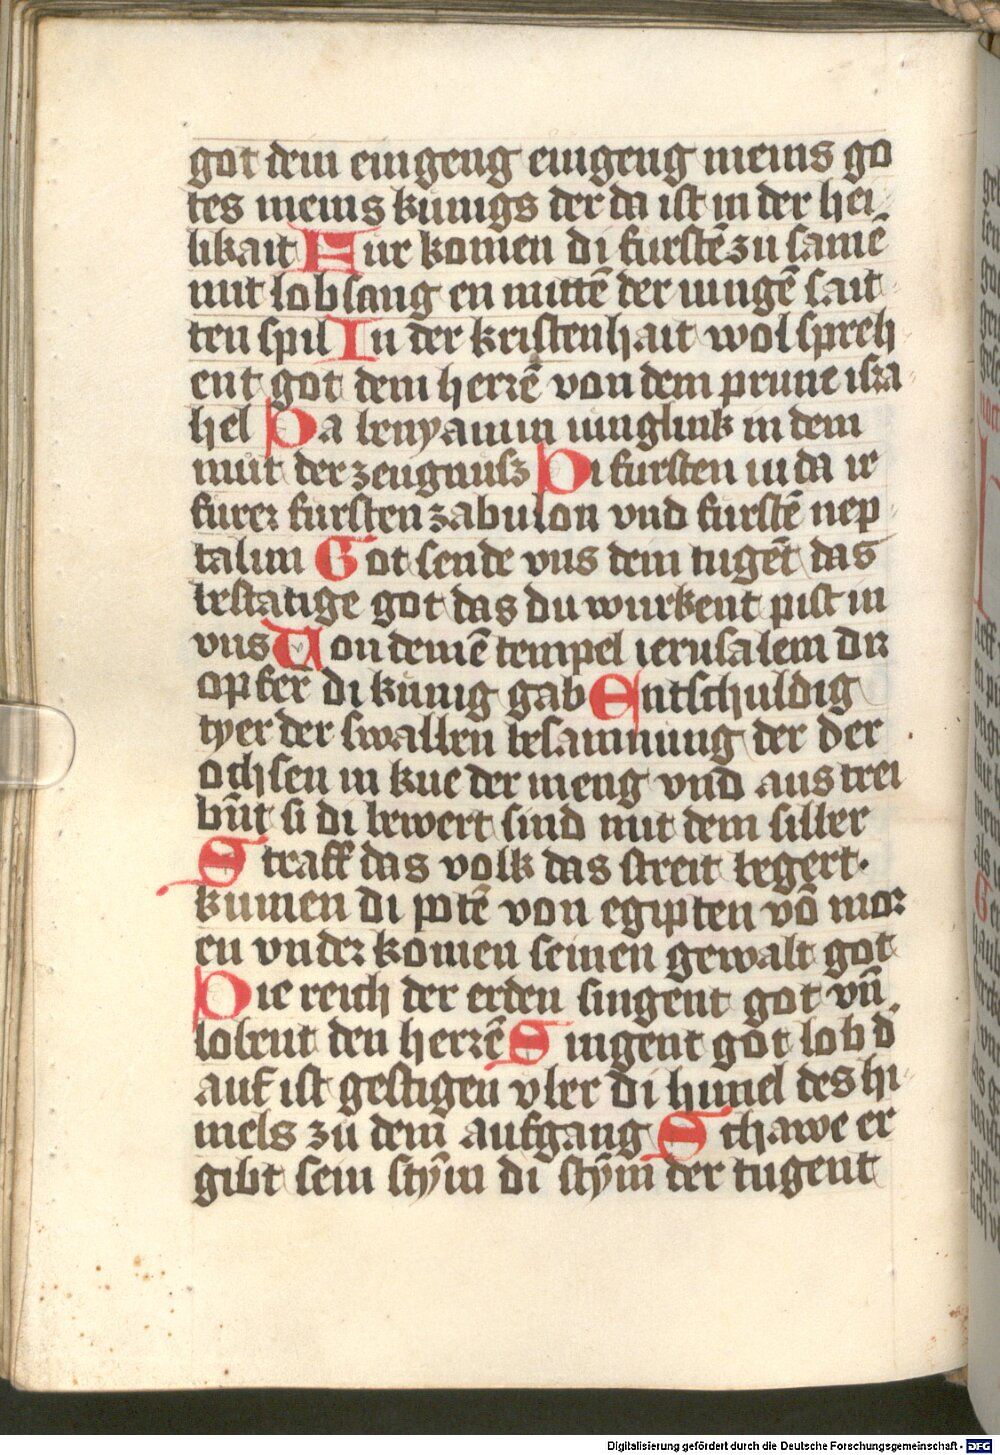 got dem eingeng eingeng meins go
tes meins kunigs der da ist in der hei
likait Fur komen di furstē zu samē
mit lobsang en mittē der iungē sait
ten spil In der kristenhait wol spreh
ent got dem herrē von dem prune isra
hel Da benyamin iunglink in dem
mut der zeugnusz Di fursten iuda ir
furer fursten zabulon vnd furstē nep
talim Got sende vns dem tugēt das
bestatige got das du wurkent pist in
vns Von deinē tempel ierusalem dir
opfer di kunig gab Entschuldig
tyer der swallen besamnung der der
ochsen in kue der meng vnd aus trei
bn̄t si di bewert sind mit dem silber
Straff das volk das streit begert·
kumen di potē von egipten vō mor
en vnder komen seinen gewalt got
Die reich der erden singent got vn̄
lobent den herrē Singent got lob d'
auf ist gestigen vber di himel des hi
mels zu dem aufgang Schawe er
gibt sein stȳm di stȳm der tugent
Digitalisierung gefördert durch die Deutsche Forschungsgemeinschaft - DFG